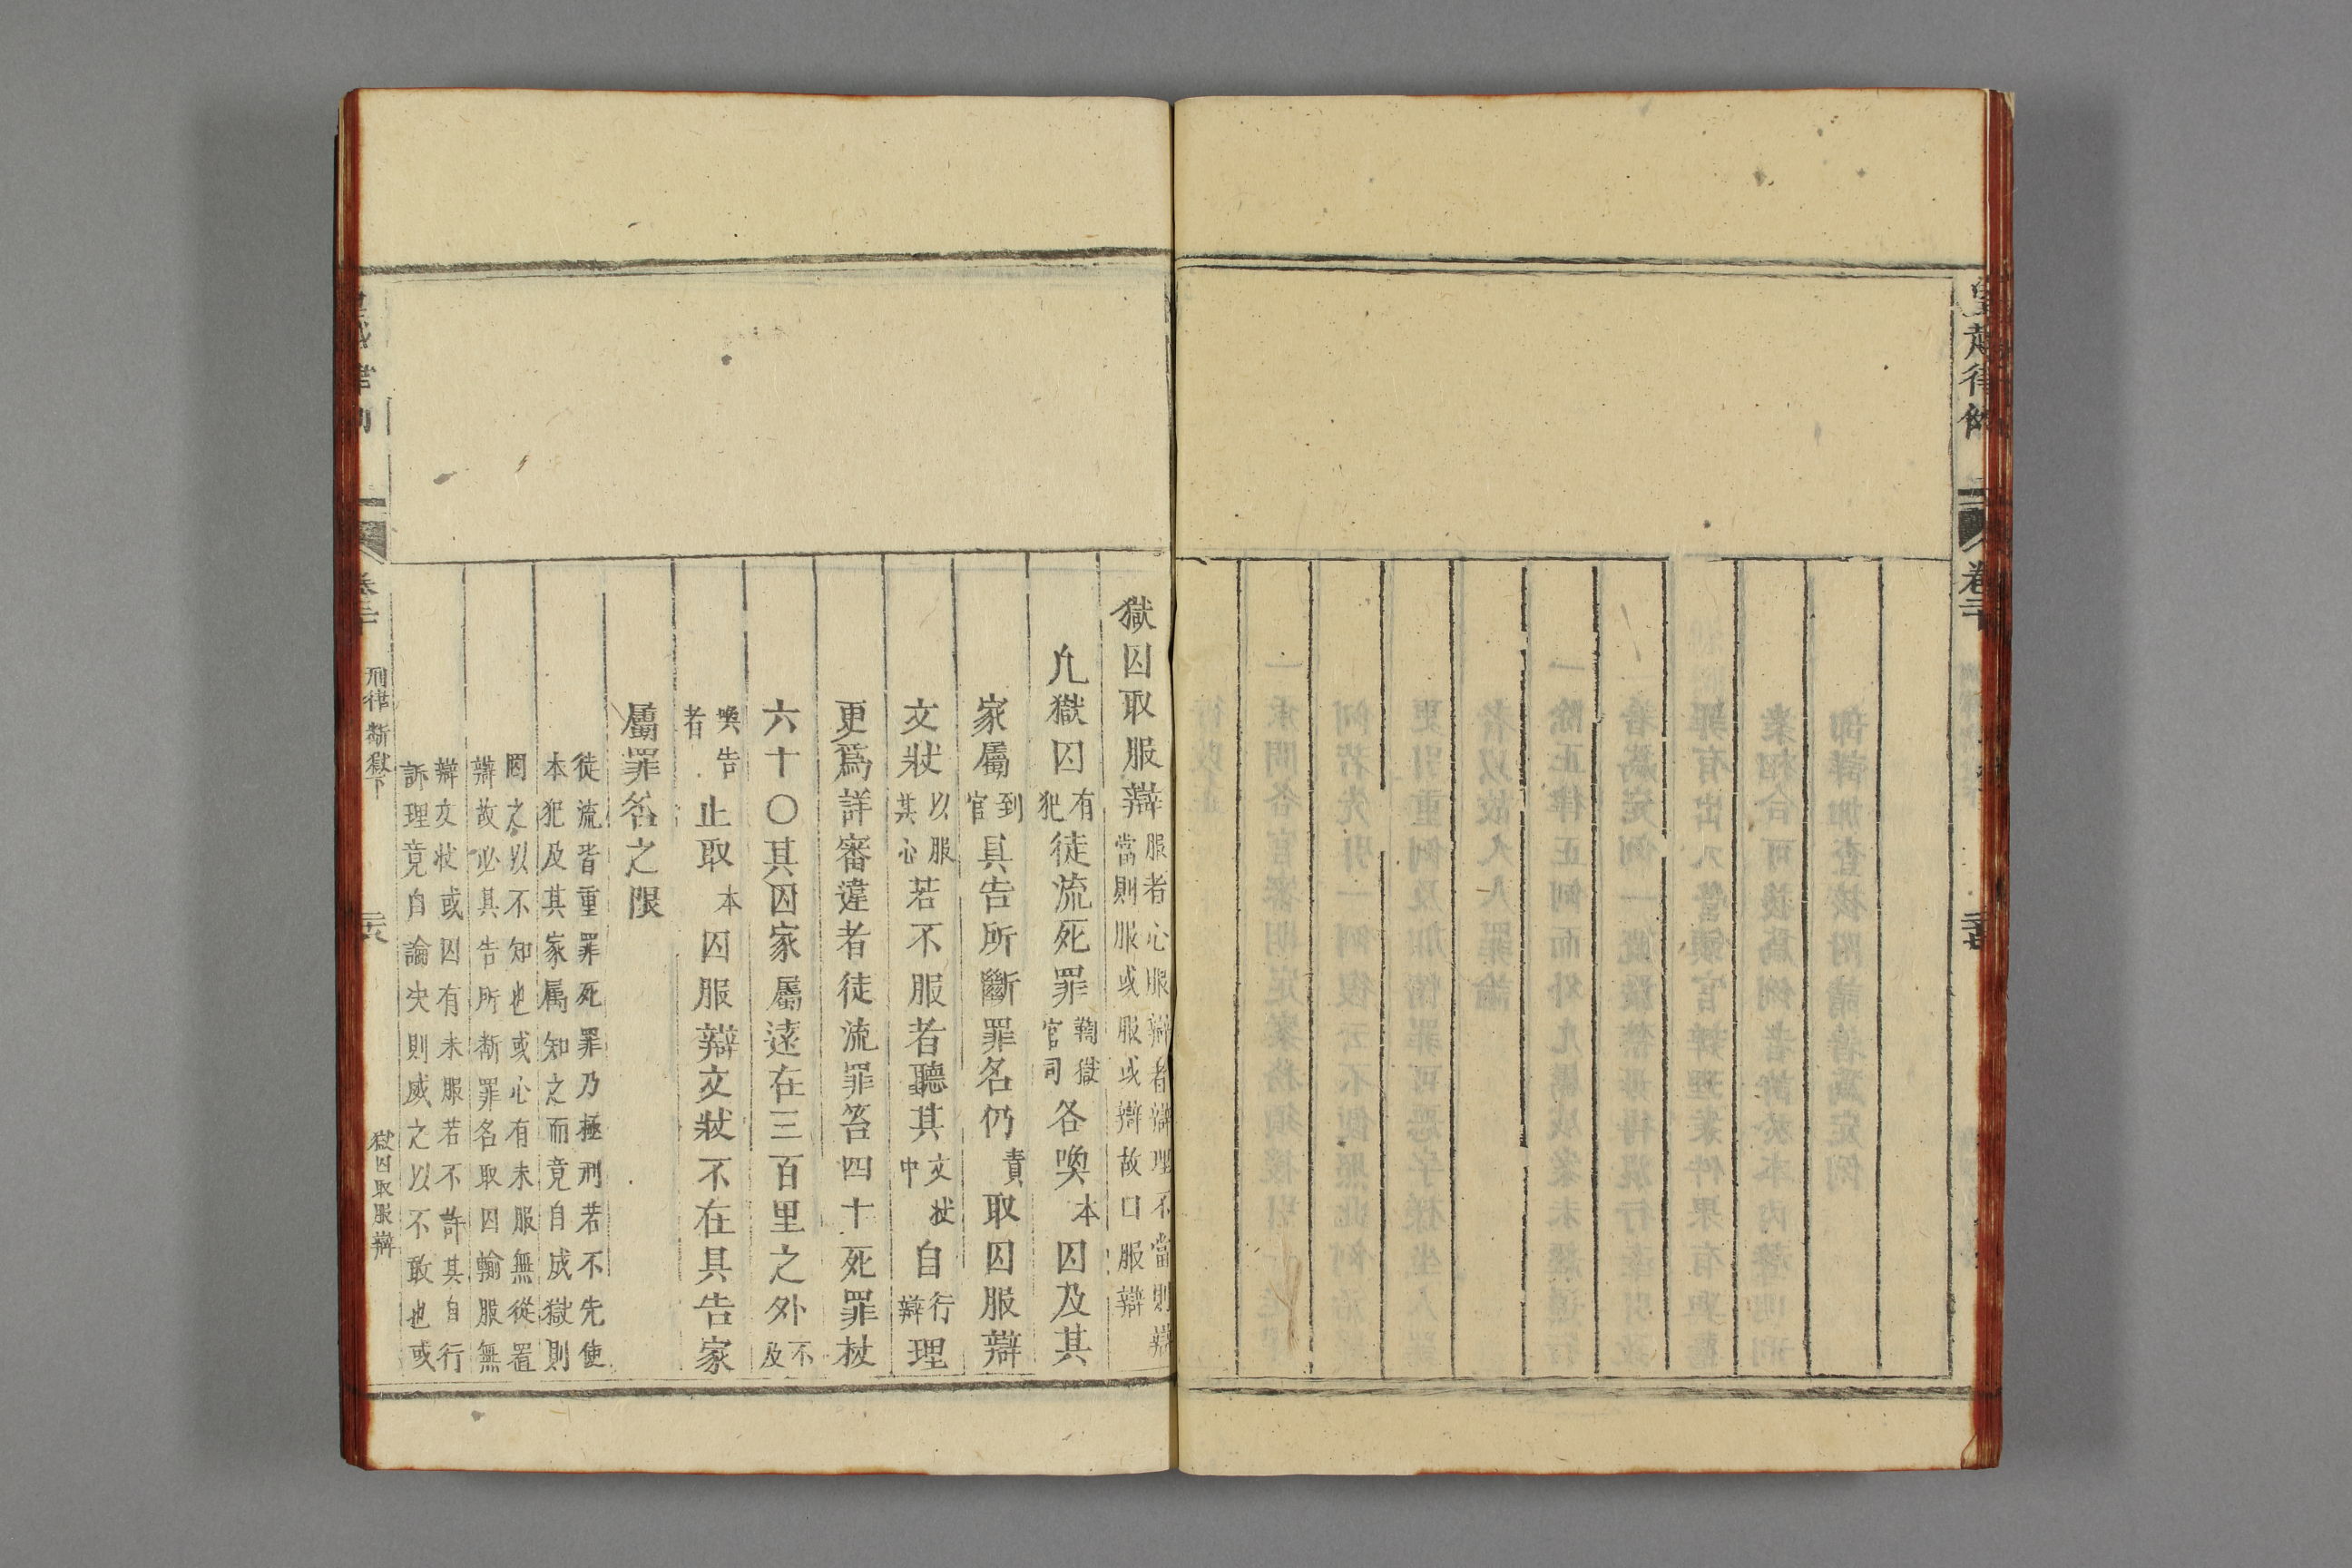 皇越律例 卷二十
獄囚取服辯 服者心服辯者辯理不當則辯當則服或服或辯故曰服辯
凡獄囚 有犯 徒流死罪 鞫獄官司 各喚 本 囚及其
家屬 到官 具告所斷罪名仍 責 取囚服辯
文狀 以服其心 若不服者聽其 文狀中 自 行辯 理
更爲詳審違者徒流罪笞四十死罪杖
六十〇其囚家屬遠在三百里之外 不及
喚告者 止取 本 囚服辯文狀不在具告家
屬罪名之限
徒流皆重罪死罪乃極刑若不先使
本犯及其家属知之而竟自成獄則
罔之以不知也或心有未服無從置
辯故必具告所斷罪名取囚輸服無
辯文狀或囚有未服若不許其自行
訴理竟自論决則威之以不敢也或
卷二十 刑律 斷獄下 二六 獄囚取服辯